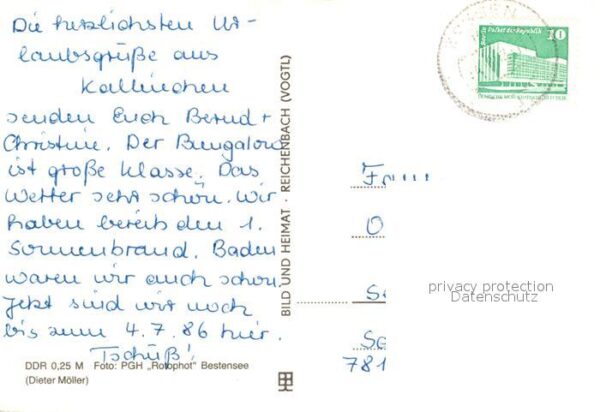 Die herzlichsten Ur-
laubsgrüße aus
Kallinchen
senden Euch Bernd +
Christine. Der Bungalow
ist große Klasse. Das
Wetter sehr schön. Wir
haben bereits den 1.
Sonnenbrand. Baden
waren wir auch schon.
Jetzt sind wir noch
bis zum 4.7.86 hier.
Tschüß!
DDR 0,25 M Foto: PGH „Rotophot" Bestensee
(Dieter Möller)
BILD UND HEIMAT · REICHENBACH (VOGTL)
Palast der Republik
10
privacy protection
Datenschutz
781